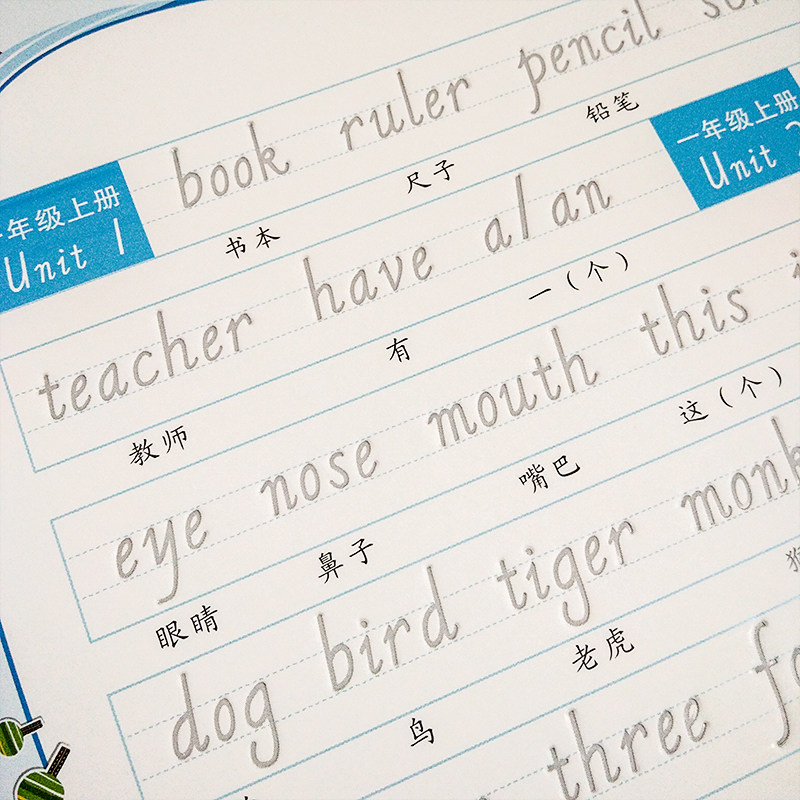 book ruler pencil
一年级上册 书本 尺子 铅笔 一年级上册
Unit 1 Unit 2
teacher have a/an
教师 有 一（个）
eye nose mouth this
眼睛 鼻子 嘴巴 这（个）
dog bird tiger
鸟 老虎
three